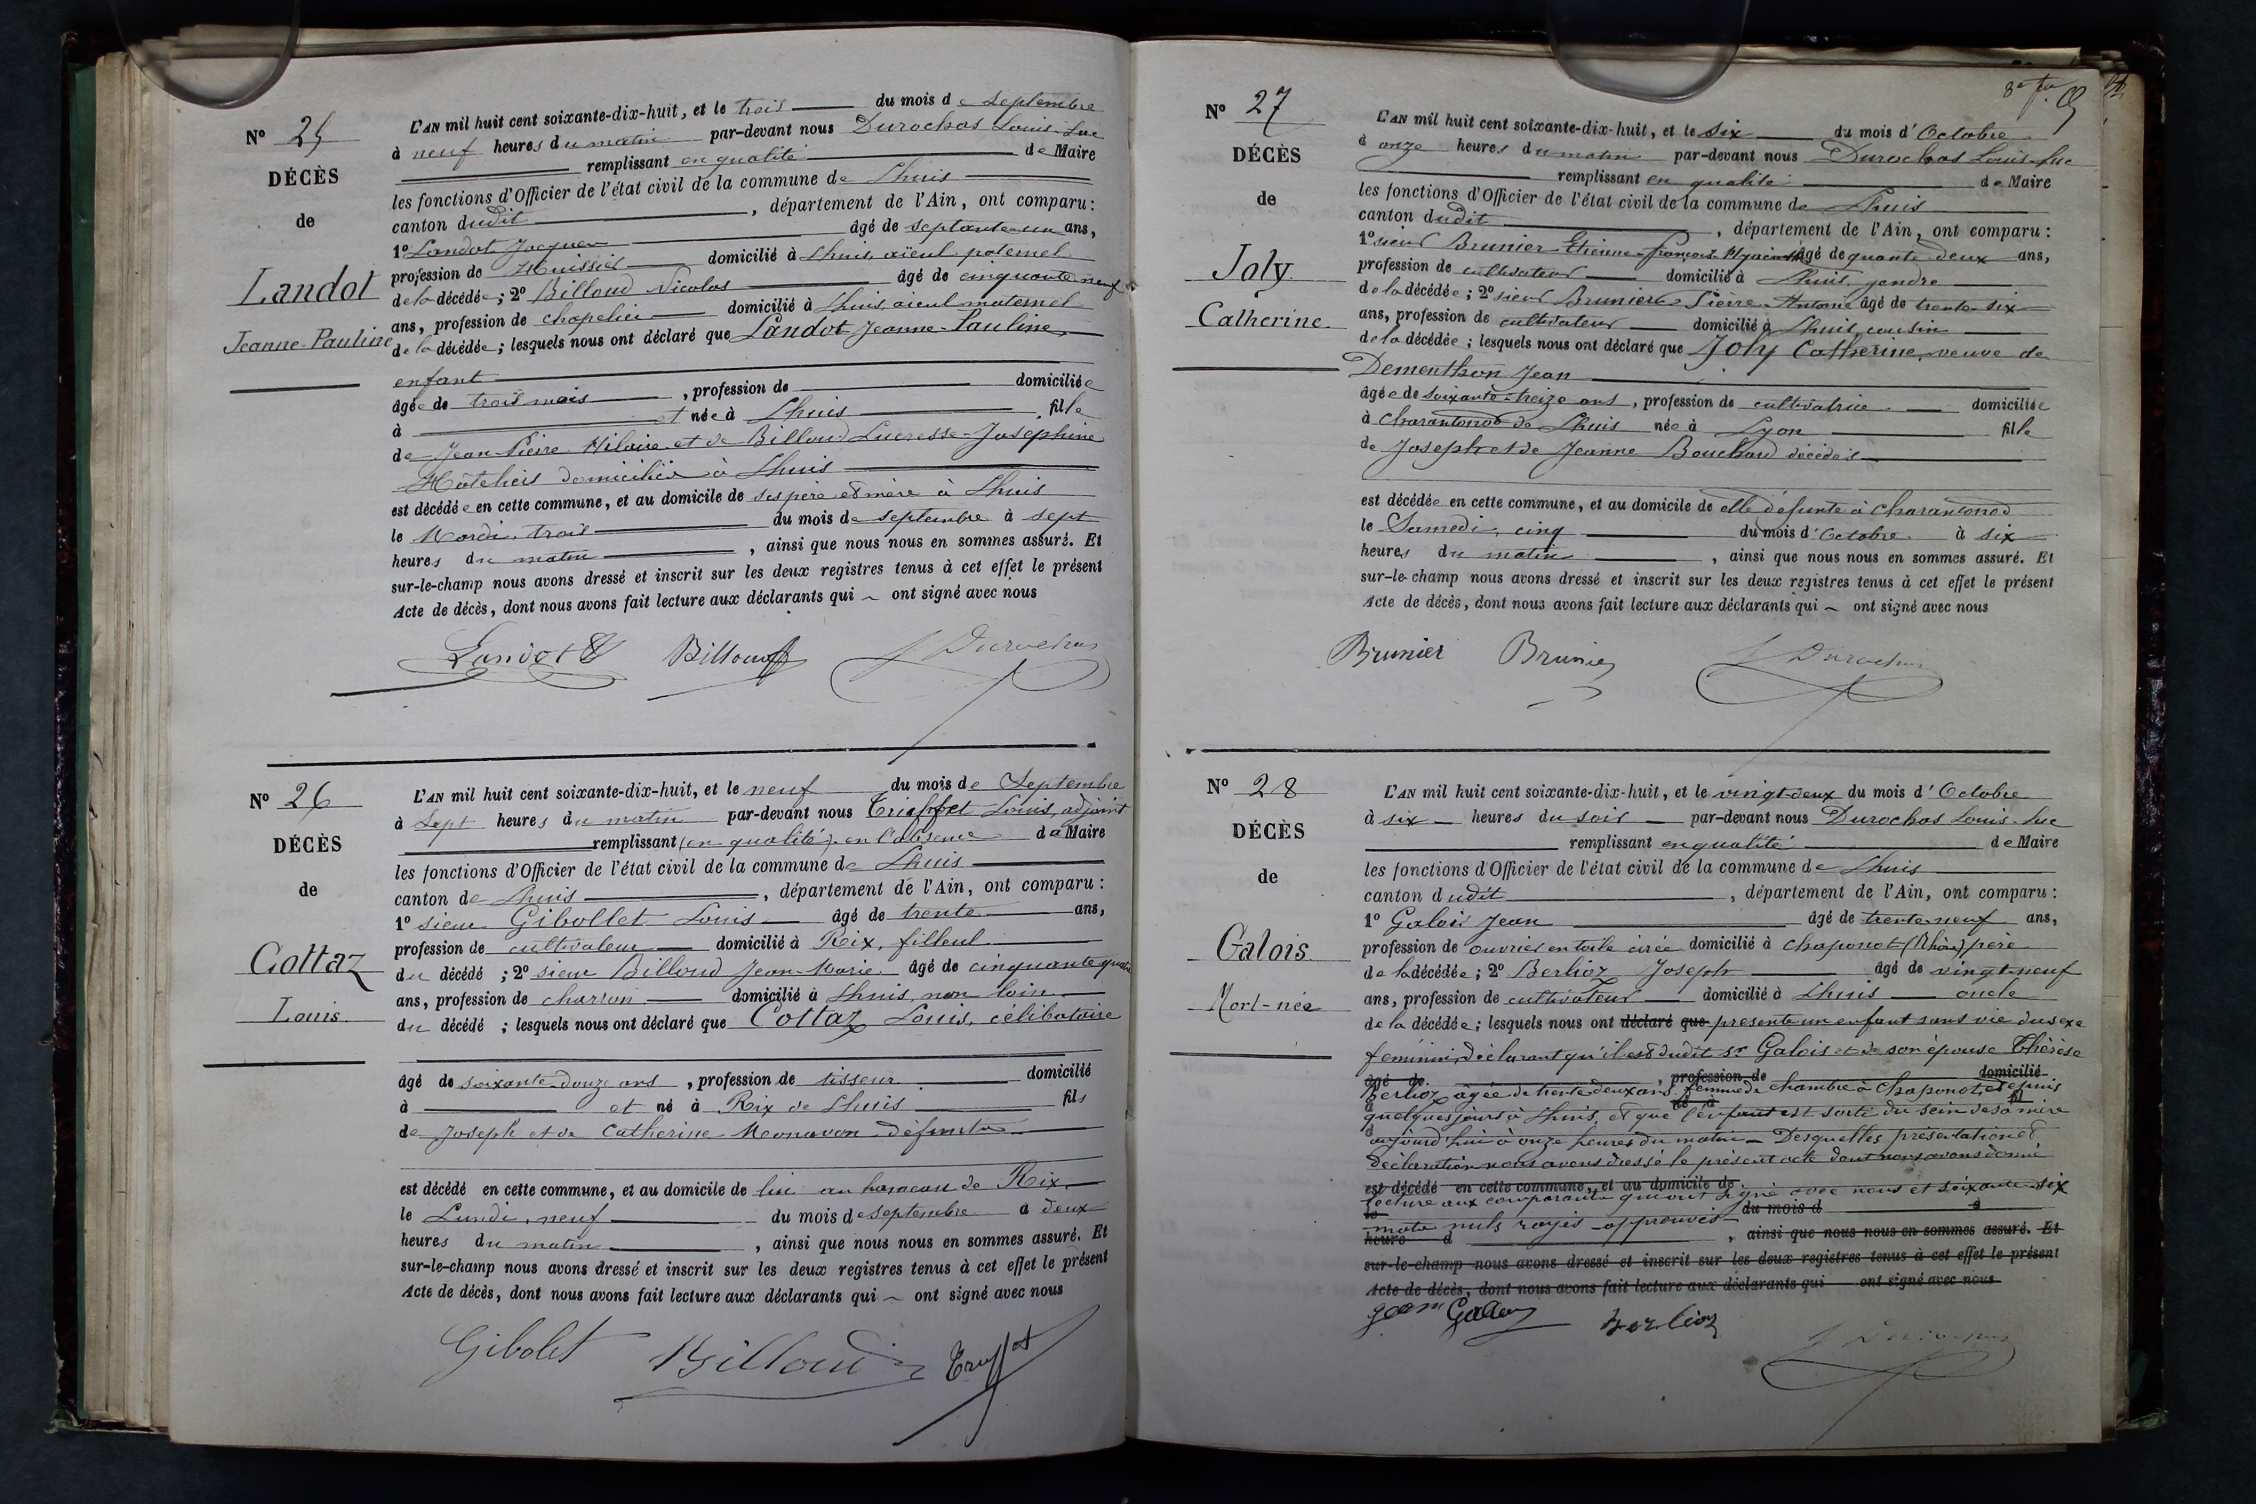 Nº 25
DÉCÈS
de
Landot
Jeanne-Pauline
L'AN mil huit cent soixante-dix-huit, et le trois du mois de Septembre
à neuf heures du matin par-devant nous Durochas Louis-Luc
remplissant en qualité de Maire
les fonctions d'Officier de l'état civil de la commune de Lhuis
canton dudit , département de l'Ain, ont comparu :
1º Landot Jacques âgé de septante-un ans,
profession de Huissier domicilié à Lhuis, aïeul paternel
de la décédée ; 2º Billoud Nicolas âgé de cinquante neuf
ans, profession de chapelier domicilié à Lhuis, aieul maternel
de la décédée ; lesquels nous ont déclaré que Landot Jeanne-Pauline
enfant
âgée de trois mois , profession de domiciliée
à et née à Lhuis fille
de Jean-Pierre Hilaire et de Billoud Lucresse-Josephine
Hôteliers domiciliés à Lhuis
est décédée en cette commune, et au domicile de ses père et mère à Lhuis
le Mardi, trois du mois de septembre à sept
heures du matin , ainsi que nous nous en sommes assuré. Et
sur-le-champ nous avons dressé et inscrit sur les deux registres tenus à cet effet le présent
Acte de décès, dont nous avons fait lecture aux déclarants qui ~ ont signé avec nous
Landot Billoud L Durochas
Nº 26
DÉCÈS
de
Cottaz
Louis
L'AN mil huit cent soixante-dix-huit, et le neuf du mois de Septembre
à Sept heures du matin par-devant nous Louis, adjoint
remplissant (en qualité) en l'absence du Maire
les fonctions d'Officier de l'état civil de la commune de Lhuis
canton de Lhuis , département de l'Ain, ont comparu :
1º sieur Gibollet Louis âgé de trente ans,
profession de cultivateur domicilié à Rix, filleul
du décédé ; 2º sieur Billoud Jean-Marie âgé de cinquante quatre
ans, profession de charron domicilié à Lhuis, non loin
du décédé ; lesquels nous ont déclaré que Cottaz Louis, célibataire
âgé de soixante-douze ans , profession de tisseur domicilié
à et né à Rix de Lhuis fils
de Joseph et de Catherine Monavon défunts
est décédé en cette commune, et au domicile de lui au hameau de Rix
le Lundi, neuf du mois de septembre à deux
heures du matin , ainsi que nous nous en sommes assuré. Et
sur-le-champ nous avons dressé et inscrit sur les deux registres tenus à cet effet le présent
Acte de décès, dont nous avons fait lecture aux déclarants qui ~ ont signé avec nous
Gibolet Billoud
Nº 27
DÉCÈS
de
Joly
Catherine
L'AN mil huit cent soixante-dix-huit, et le six du mois d'Octobre
à onze heures du matin par-devant nous Durochas Louis-Luc
remplissant en qualité de Maire
les fonctions d'Officier de l'état civil de la commune de Lhuis
canton dudit , département de l'Ain, ont comparu :
1º sieur Brunier Etienne-françois-Hyacinthe âgé de quante deux ans,
profession de cultivateur domicilié à Lhuis, gendre
de la décédée ; 2º sieur Brunier Pierre-Antoine âgé de trente six
ans, profession de cultivateur domicilié à Lhuis, cousin
de la décédée ; lesquels nous ont déclaré que Joly Catherine, veuve de
Dementhon Jean
âgée de soixante-treize ans , profession de cultivatrice domiciliée
à Charantonod de Lhuis née à Lyon fille
de Joseph et de Jeanne Bouchard décédés
est décédée en cette commune, et au domicile de elle défunte à Charantonod
le Samedi, cinq du mois d'Octobre à six
heures du matin , ainsi que nous nous en sommes assuré. Et
sur-le-champ nous avons dressé et inscrit sur les deux registres tenus à cet effet le présent
Acte de décès, dont nous avons fait lecture aux déclarants qui ~ ont signé avec nous
Brunier Brunier L Durochas
Nº 28
DÉCÈS
de
Galois
Mort-née
L'AN mil huit cent soixante-dix-huit, et le vingt-deux du mois d'Octobre
à six heures du soir par-devant nous Durochas Louis-Luc
remplissant en qualité de Maire
les fonctions d'Officier de l'état civil de la commune de Lhuis
canton dudit , département de l'Ain, ont comparu :
1º Galois Jean âgé de trente-neuf ans,
profession de ouvrier en toile cirée domicilié à Chaponot (Rhône) père
de la décédée ; 2º Berlioz Joseph âgé de vingt-neuf
ans, profession de cultivateur domicilié à Lhuis oncle
de la décédée ; lesquels nous ont déclaré que présenté un enfant sans vie du sexe
féminin, déclarant qu'il est dudit sr Galois et de son épouse Thérèse
âgé de , profession de domicilié
Berlioz âgée de trente deux ans femme de chambre à Chaponot, depuis
à né à fil
quelques jours à Lhuis, et que l'enfant est sorti du sein de sa mère
aujourd'hui à onze heures du matin Desquelles présentation et
déclaration nous avons dressé le présent acte dont nous avons donné
est décédé en cette commune, et au domicile de
lecture aux comparants qui ont signé avec nous et soixante-six
le du mois d à
mots nuls rayés approuvés
heure d , ainsi que nous nous en sommes assuré. Et
sur-le-champ nous avons dressé et inscrit sur les deux registres tenus à cet effet le présent
Acte de décès, dont nous avons fait lecture aux déclarants qui ont signé avec nous
Berlioz L Durochas